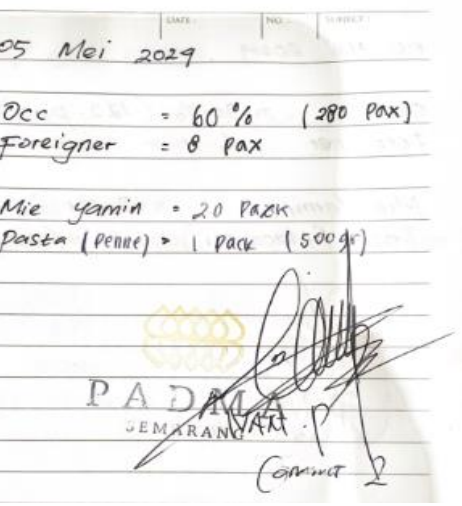 DATE: NO: SUBJECT:
05 Mei 2024
Occ = 60 % (280 Pax)
Foreigner = 8 Pax
Mie yamin = 20 Pack
Pasta (Penne) = 1 Pack (500 gr)
PADMA
SEMARANG